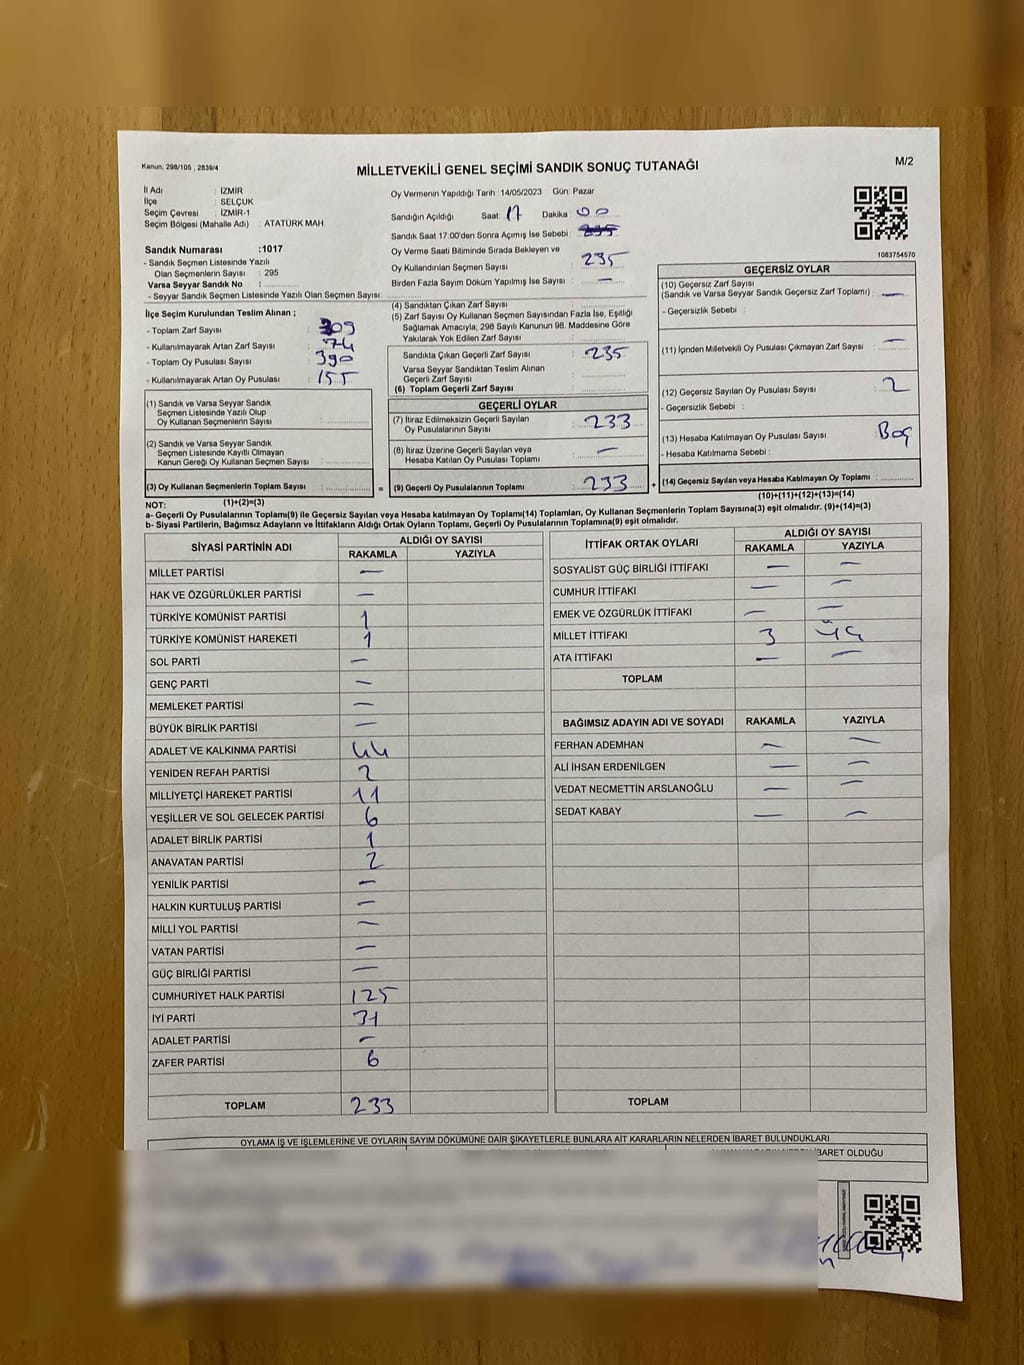 Kanun; 298/105 , 2839/4
MİLLETVEKİLİ GENEL SEÇİMİ SANDIK SONUÇ TUTANAĞI
M/2
İl Adı : İZMİR
İlçe : SELÇUK
Seçim Çevresi : İZMİR-1
Seçim Bölgesi (Mahalle Adı) : ATATÜRK MAH
Sandık Numarası :1017
- Sandık Seçmen Listesinde Yazılı
Olan Seçmenlerin Sayısı : 295
Varsa Seyyar Sandık No :
- Seyyar Sandık Seçmen Listesinde Yazılı Olan Seçmen Sayısı
Oy Vermenin Yapıldığı Tarih :14/05/2023 Gün: Pazar
Sandığın Açıldığı Saat: 17 Dakika: 00
Sandık Saat 17:00'den Sonra Açımış İse Sebebi :
Oy Verme Saati Bitiminde Sırada Bekleyen ve
Oy Kullandırılan Seçmen Sayısı : 235
Birden Fazla Sayım Döküm Yapılmış İse Sayısı : —
1083754570
İlçe Seçim Kurulundan Teslim Alınan ;
- Toplam Zarf Sayısı : 309
- Kullanılmayarak Artan Zarf Sayısı : 74
- Toplam Oy Pusulası Sayısı : 390
- Kullanılmayarak Artan Oy Pusulası : 155
(1) Sandık ve Varsa Seyyar Sandık
Seçmen Listesinde Yazılı Olup
Oy Kullanan Seçmenlerin Sayısı :
(2) Sandık ve Varsa Seyyar Sandık
Seçmen Listesinde Kayıtlı Olmayan
Kanun Gereği Oy Kullanan Seçmen Sayısı :
(3) Oy Kullanan Seçmenlerin Toplam Sayısı :
(1)+(2)=(3)
(4) Sandıktan Çıkan Zarf Sayısı :
(5) Zarf Sayısı Oy Kullanan Seçmen Sayısından Fazla İse, Eşitliği
Sağlamak Amacıyla, 298 Sayılı Kanunun 98. Maddesine Göre
Yakılarak Yok Edilen Zarf Sayısı :
Sandıkta Çıkan Geçerli Zarf Sayısı : 235
Varsa Seyyar Sandıktan Teslim Alınan
Geçerli Zarf Sayısı :
(6) Toplam Geçerli Zarf Sayısı :
GEÇERLİ OYLAR
(7) İtiraz Edilmeksizin Geçerli Sayılan
Oy Pusulalarının Sayısı : 233
(8) İtiraz Üzerine Geçerli Sayılan veya
Hesaba Katılan Oy Pusulası Toplamı : —
= (9) Geçerli Oy Pusulalarının Toplamı : 233 +
GEÇERSİZ OYLAR
(10) Geçersiz Zarf Sayısı
(Sandık ve Varsa Seyyar Sandık Geçersiz Zarf Toplamı) : —
- Geçersizlik Sebebi :
(11) İçinden Milletvekili Oy Pusulası Çıkmayan Zarf Sayısı : —
(12) Geçersiz Sayılan Oy Pusulası Sayısı : 2
- Geçersizlik Sebebi :
(13) Hesaba Katılmayan Oy Pusulası Sayısı : Boş
- Hesaba Katılmama Sebebi :
(14) Geçersiz Sayılan veya Hesaba Katılmayan Oy Toplamı :
(10)+(11)+(12)+(13)=(14)
NOT:
a- Geçerli Oy Pusulalarının Toplamı(9) ile Geçersiz Sayılan veya Hesaba katılmayan Oy Toplamı(14) Toplamları, Oy Kullanan Seçmenlerin Toplam Sayısına(3) eşit olmalıdır. (9)+(14)=(3)
b- Siyasi Partilerin, Bağımsız Adayların ve İttifakların Aldığı Ortak Oyların Toplamı, Geçerli Oy Pusulalarının Toplamına(9) eşit olmalıdır.
SİYASİ PARTİNİN ADI ALDIĞI OY SAYISI
RAKAMLA YAZIYLA
MİLLET PARTİSİ —
HAK VE ÖZGÜRLÜKLER PARTİSİ —
TÜRKİYE KOMÜNİST PARTİSİ 1
TÜRKİYE KOMÜNİST HAREKETİ 1
SOL PARTİ —
GENÇ PARTİ —
MEMLEKET PARTİSİ —
BÜYÜK BİRLİK PARTİSİ —
ADALET VE KALKINMA PARTİSİ 44
YENİDEN REFAH PARTİSİ 2
MİLLİYETÇİ HAREKET PARTİSİ 11
YEŞİLLER VE SOL GELECEK PARTİSİ 6
ADALET BİRLİK PARTİSİ 1
ANAVATAN PARTİSİ 2
YENİLİK PARTİSİ —
HALKIN KURTULUŞ PARTİSİ —
MİLLİ YOL PARTİSİ —
VATAN PARTİSİ —
GÜÇ BİRLİĞİ PARTİSİ —
CUMHURİYET HALK PARTİSİ 125
İYİ PARTİ 31
ADALET PARTİSİ —
ZAFER PARTİSİ 6
TOPLAM 233
İTTİFAK ORTAK OYLARI ALDIĞI OY SAYISI
RAKAMLA YAZIYLA
SOSYALİST GÜÇ BİRLİĞİ İTTİFAKI — —
CUMHUR İTTİFAKI — —
EMEK VE ÖZGÜRLÜK İTTİFAKI — —
MİLLET İTTİFAKI 3 üç
ATA İTTİFAKI — —
TOPLAM
BAĞIMSIZ ADAYIN ADI VE SOYADI RAKAMLA YAZIYLA
FERHAN ADEMHAN — —
ALİ İHSAN ERDENİLGEN — —
VEDAT NECMETTİN ARSLANOĞLU — —
SEDAT KABAY — —
TOPLAM
OYLAMA İŞ VE İŞLEMLERİNE VE OYLARIN SAYIM DÖKÜMÜNE DAİR ŞİKAYETLERLE BUNLARA AİT KARARLARIN NELERDEN İBARET BULUNDUKLARI
İBARET OLDUĞU